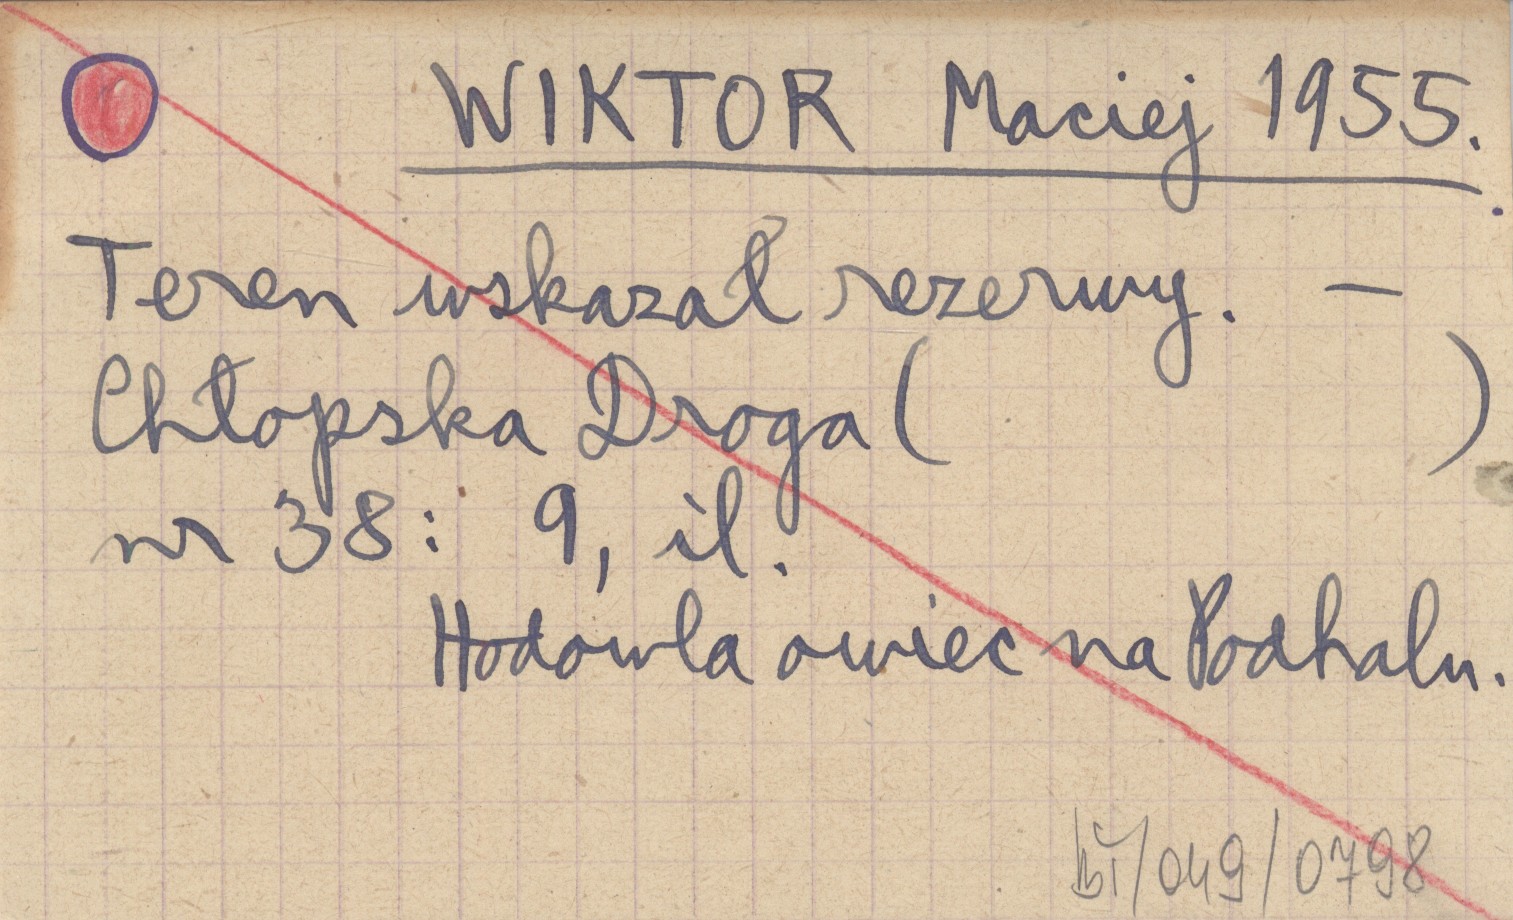 WIKTOR Maciej 1955.
Teren wskazał rezerwy. —
Chłopska Droga ( )
nr 38: 9, il.
Hodowla owiec na Podhalu.
/049/0798